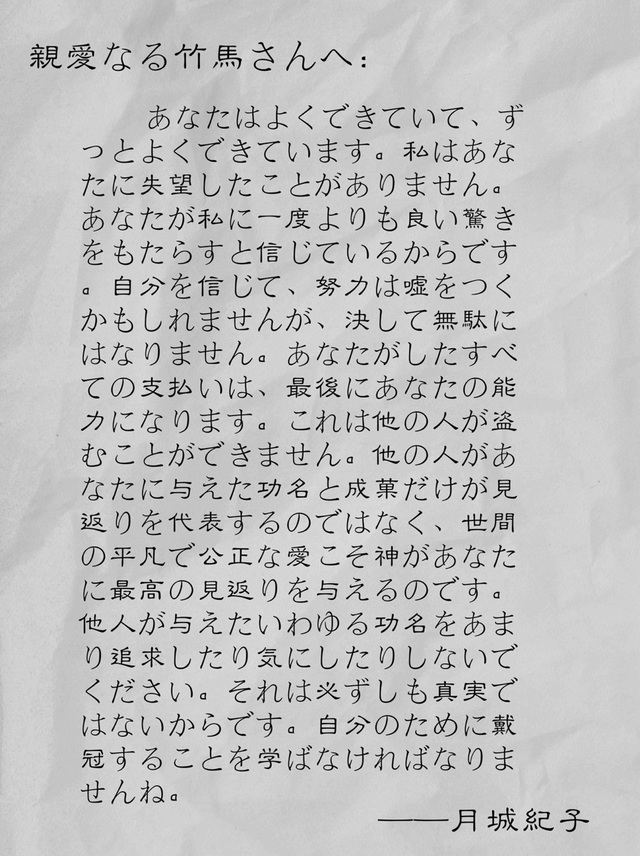 親愛なる竹馬さんへ：
あなたはよくできていて、ず
っとよくできています。私はあな
たに失望したことがありません。
あなたが私に一度よりも良い驚き
をもたらすと信じているからです
。自分を信じて、努力は嘘をつく
かもしれませんが、決して無駄に
はなりません。あなたがしたすべ
ての支払いは、最後にあなたの能
力になります。これは他の人が盗
むことができません。他の人があ
なたに与えた功名と成菓だけが見
返りを代表するのではなく、世間
の平凡で公正な愛こそ神があなた
に最高の見返りを与えるのです。
他人が与えたいわゆる功名をあま
り追求したり気にしたりしないで
ください。それは必ずしも真実で
はないからです。自分のために戴
冠することを学ばなければなりま
せんね。
——月城紀子